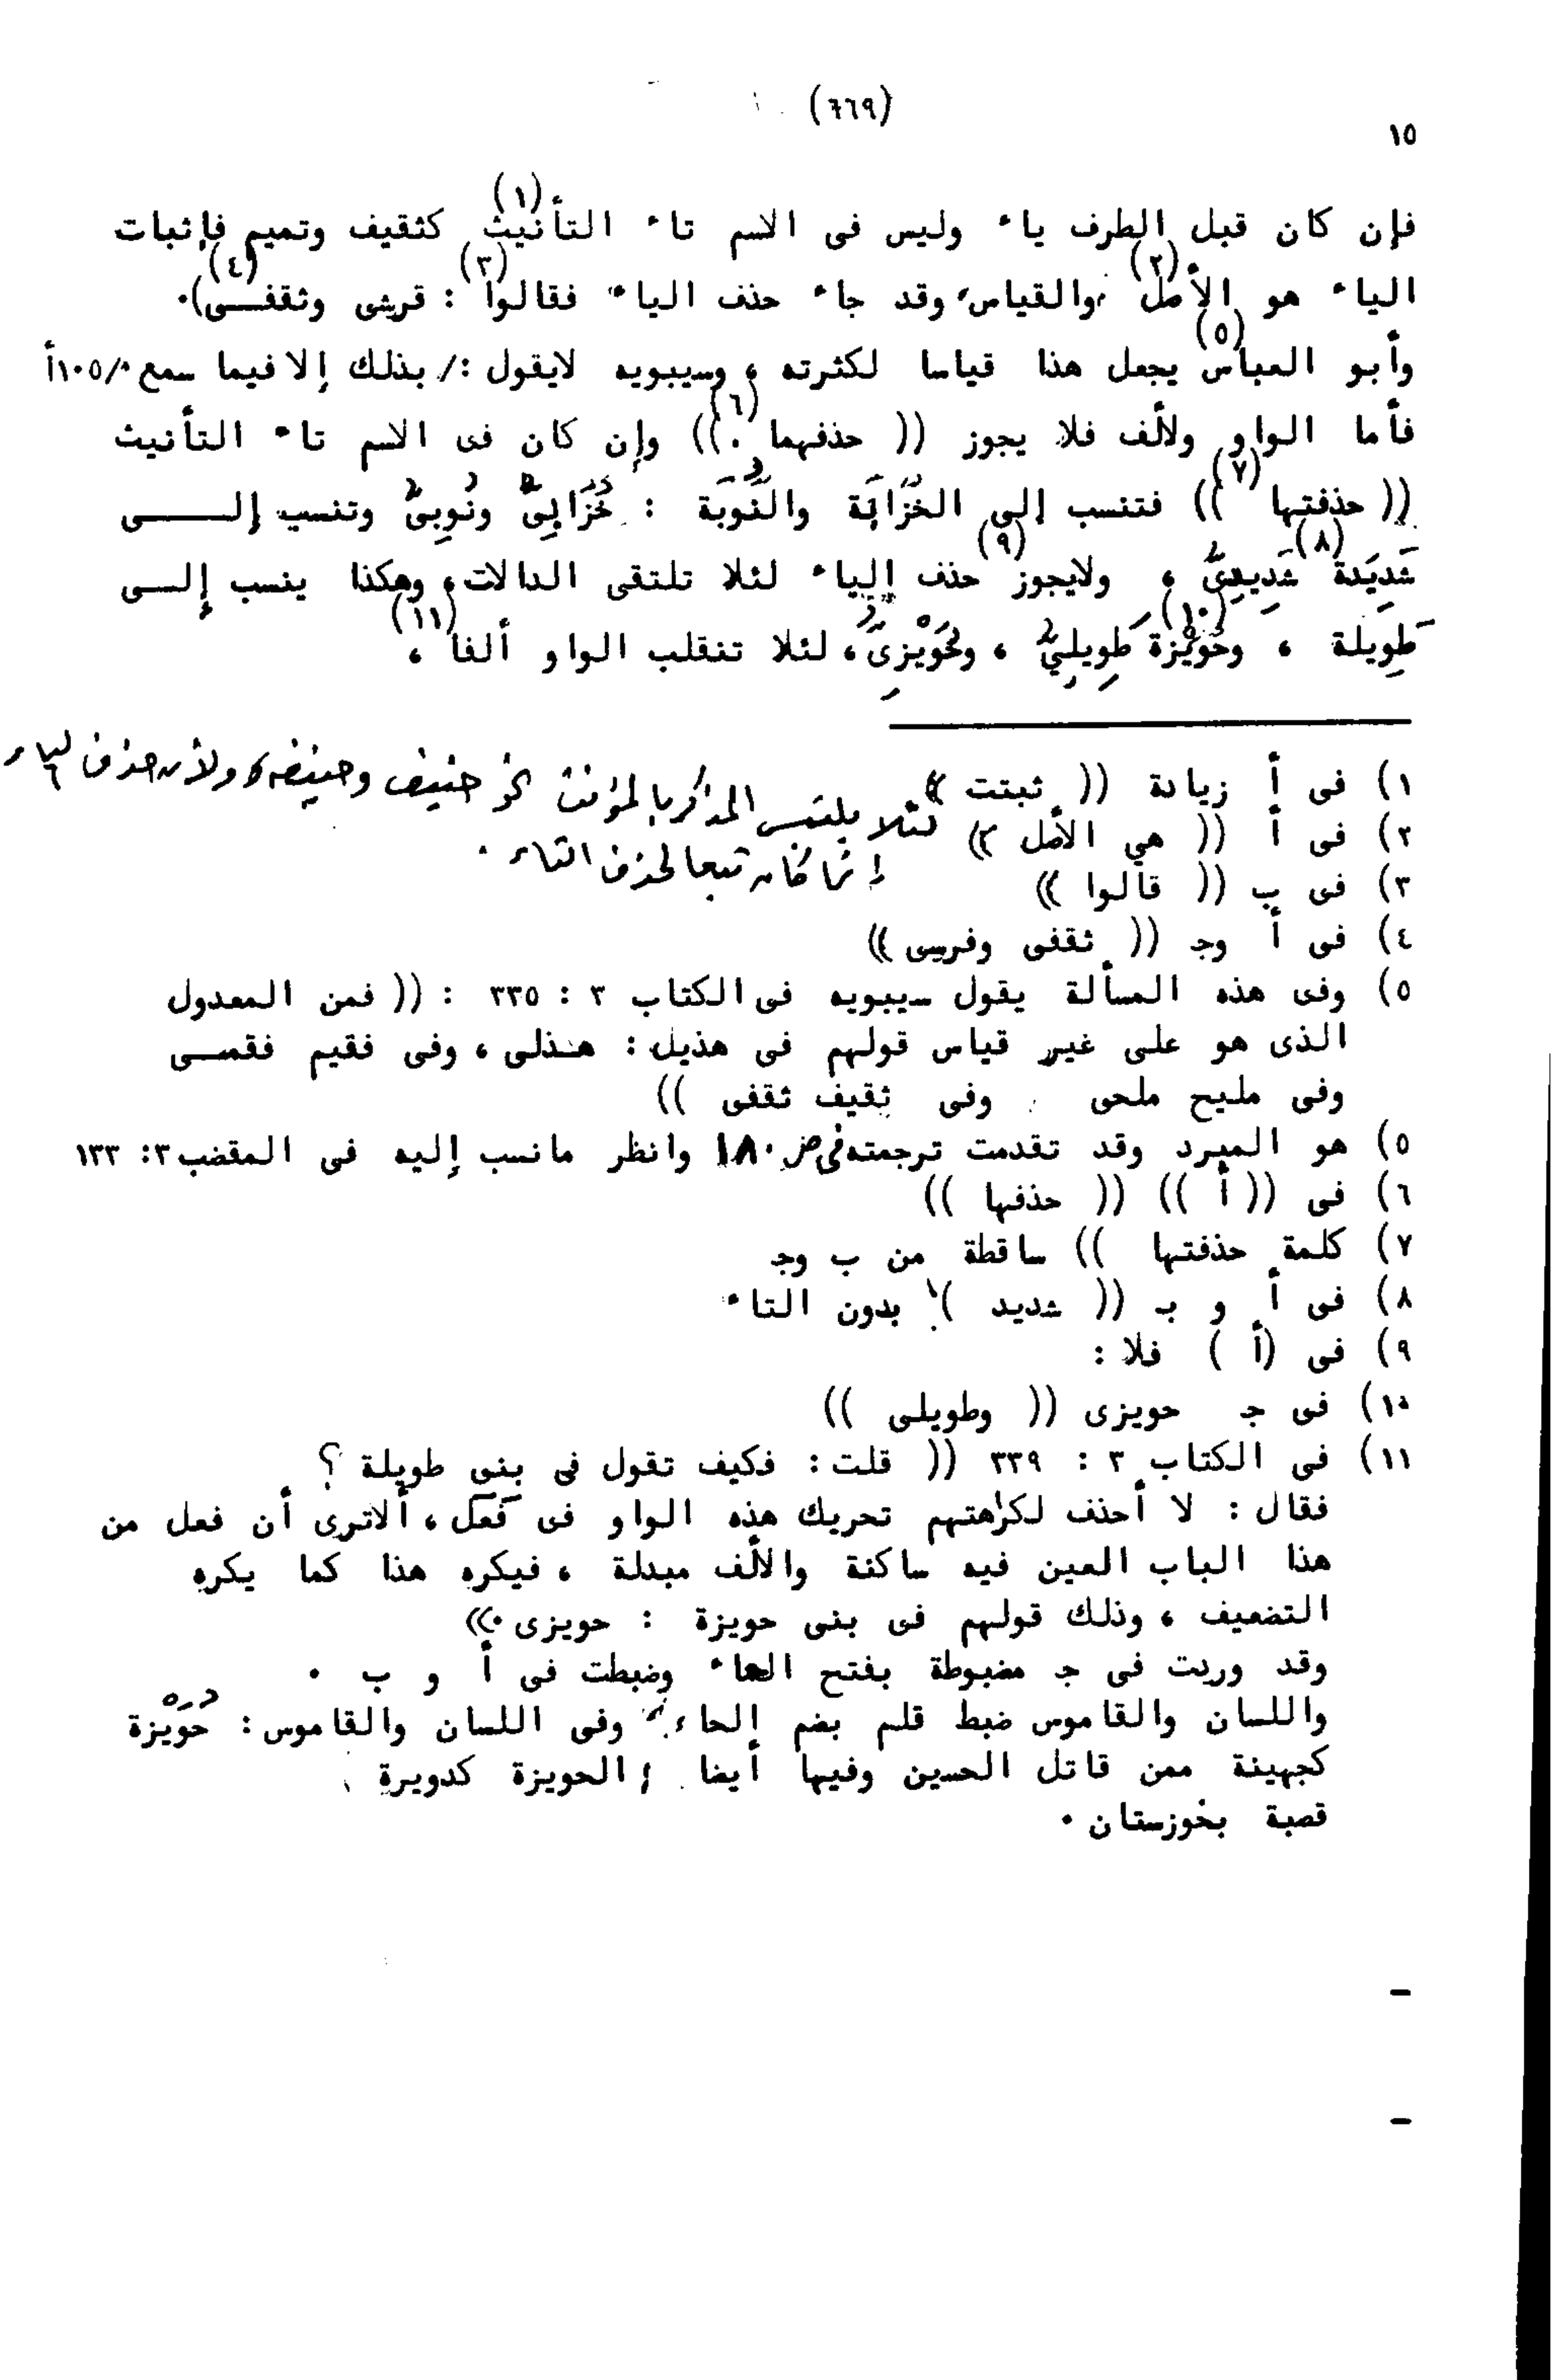 (٦٦٩)
١٥
فإن كان قبل الطرف ياء وليس فى الاسم تاء التأنيث (١) كثقيف وتميم فإثبات
الياء هو الأصل (٢) والقياس، وقد جاء حذف الياء فقالوا (٣) : قرشى وثقفــى (٤)).
وأبو العباس (٥) يجعل هذا قياسا لكثرته ، وسيبويه لايقول :/ بذلك إلا فيما سمع ٠/١٠٥أ
فأما الواو ولألف فلا يجوز (( حذفهما (٦) ٠)) وإن كان فى الاسم تاء التأنيث
(( حذفتها (٧) )) فتنسب إلى الخُزَابَة والنُّوبَة : خُزَابِىٌّ ونُوبِىٌّ وتنسب إلـــــى
شَدِيَدة (٨) شَدِيدِىٌّ ، ولايجوز (٩) حذف الياء لئلا تلتقى الدالات، وهكذا ينسب إلــى
طَوِيلة ، وحُوَيْزة (١٠) طَوِيلِيٌّ ، وحُوَيْزِىٌّ، لئلا تنقلب الواو ألفا (١١) ،
١) فى أ زيادة (( ثبتت )) لئلا يلتبس المذكر بالمؤنث نحو حنيف وحنيفه، ولأن حذف الياء
٢) فى أ (( هي الأصل )) إنما كان تبعا لحذف التاء ٠
٣) فى ب (( قالوا ))
٤) فى أ وجـ (( ثقفى وقرسى ))
٥) وفى هذه المسألة يقول سيبويه فى الكتاب ٣ : ٣٣٥ : (( فمن المعدول
الذى هو على غير قياس قولهم فى هذيل : هـذلى ، وفى فقيم فقمــى
وفى مليح ملحى وفى ثقيف ثقفى ))
٥) هو المبرد وقد تقدمت ترجمته فى ص ١٨٠ وانظر مانسب إليه فى المقضب ٣: ١٣٣
٦) فى (( أ )) (( حذفها ))
٧) كلمة حذفتها )) ساقطة من ب وجـ
٨) فى أ و بـ (( شديد )) بدون التاء
٩) فى (أ ) فلا :
١٠) فى جـ حويزى (( وطويلى ))
١١) فى الكتاب ٣ : ٣٣٩ (( قلت : فكيف تقول فى بنى طويلة ؟
فقال : لا أحذف لكراهتهم تحريك هذه الواو فى فَعَل ، ألاترى أن فعل من
هذا الباب العين فيه ساكنة والألف مبدلة ، فيكره هذا كما يكره
التضعيف ، وذلك قولهم فى بنى حويزة : حويزى ٠))
وقد وردت فى جـ مضبوطة بفتح الحاء وضبطت فى أ و ب ٠
واللسان والقاموس ضبط قلم بضم الحاء، وفى اللسان والقاموس : حُوَيْزة
كجهينة ممن قاتل الحسين وفيها أيضا : الحويزة كدويرة
قصبة بخوزستان ٠